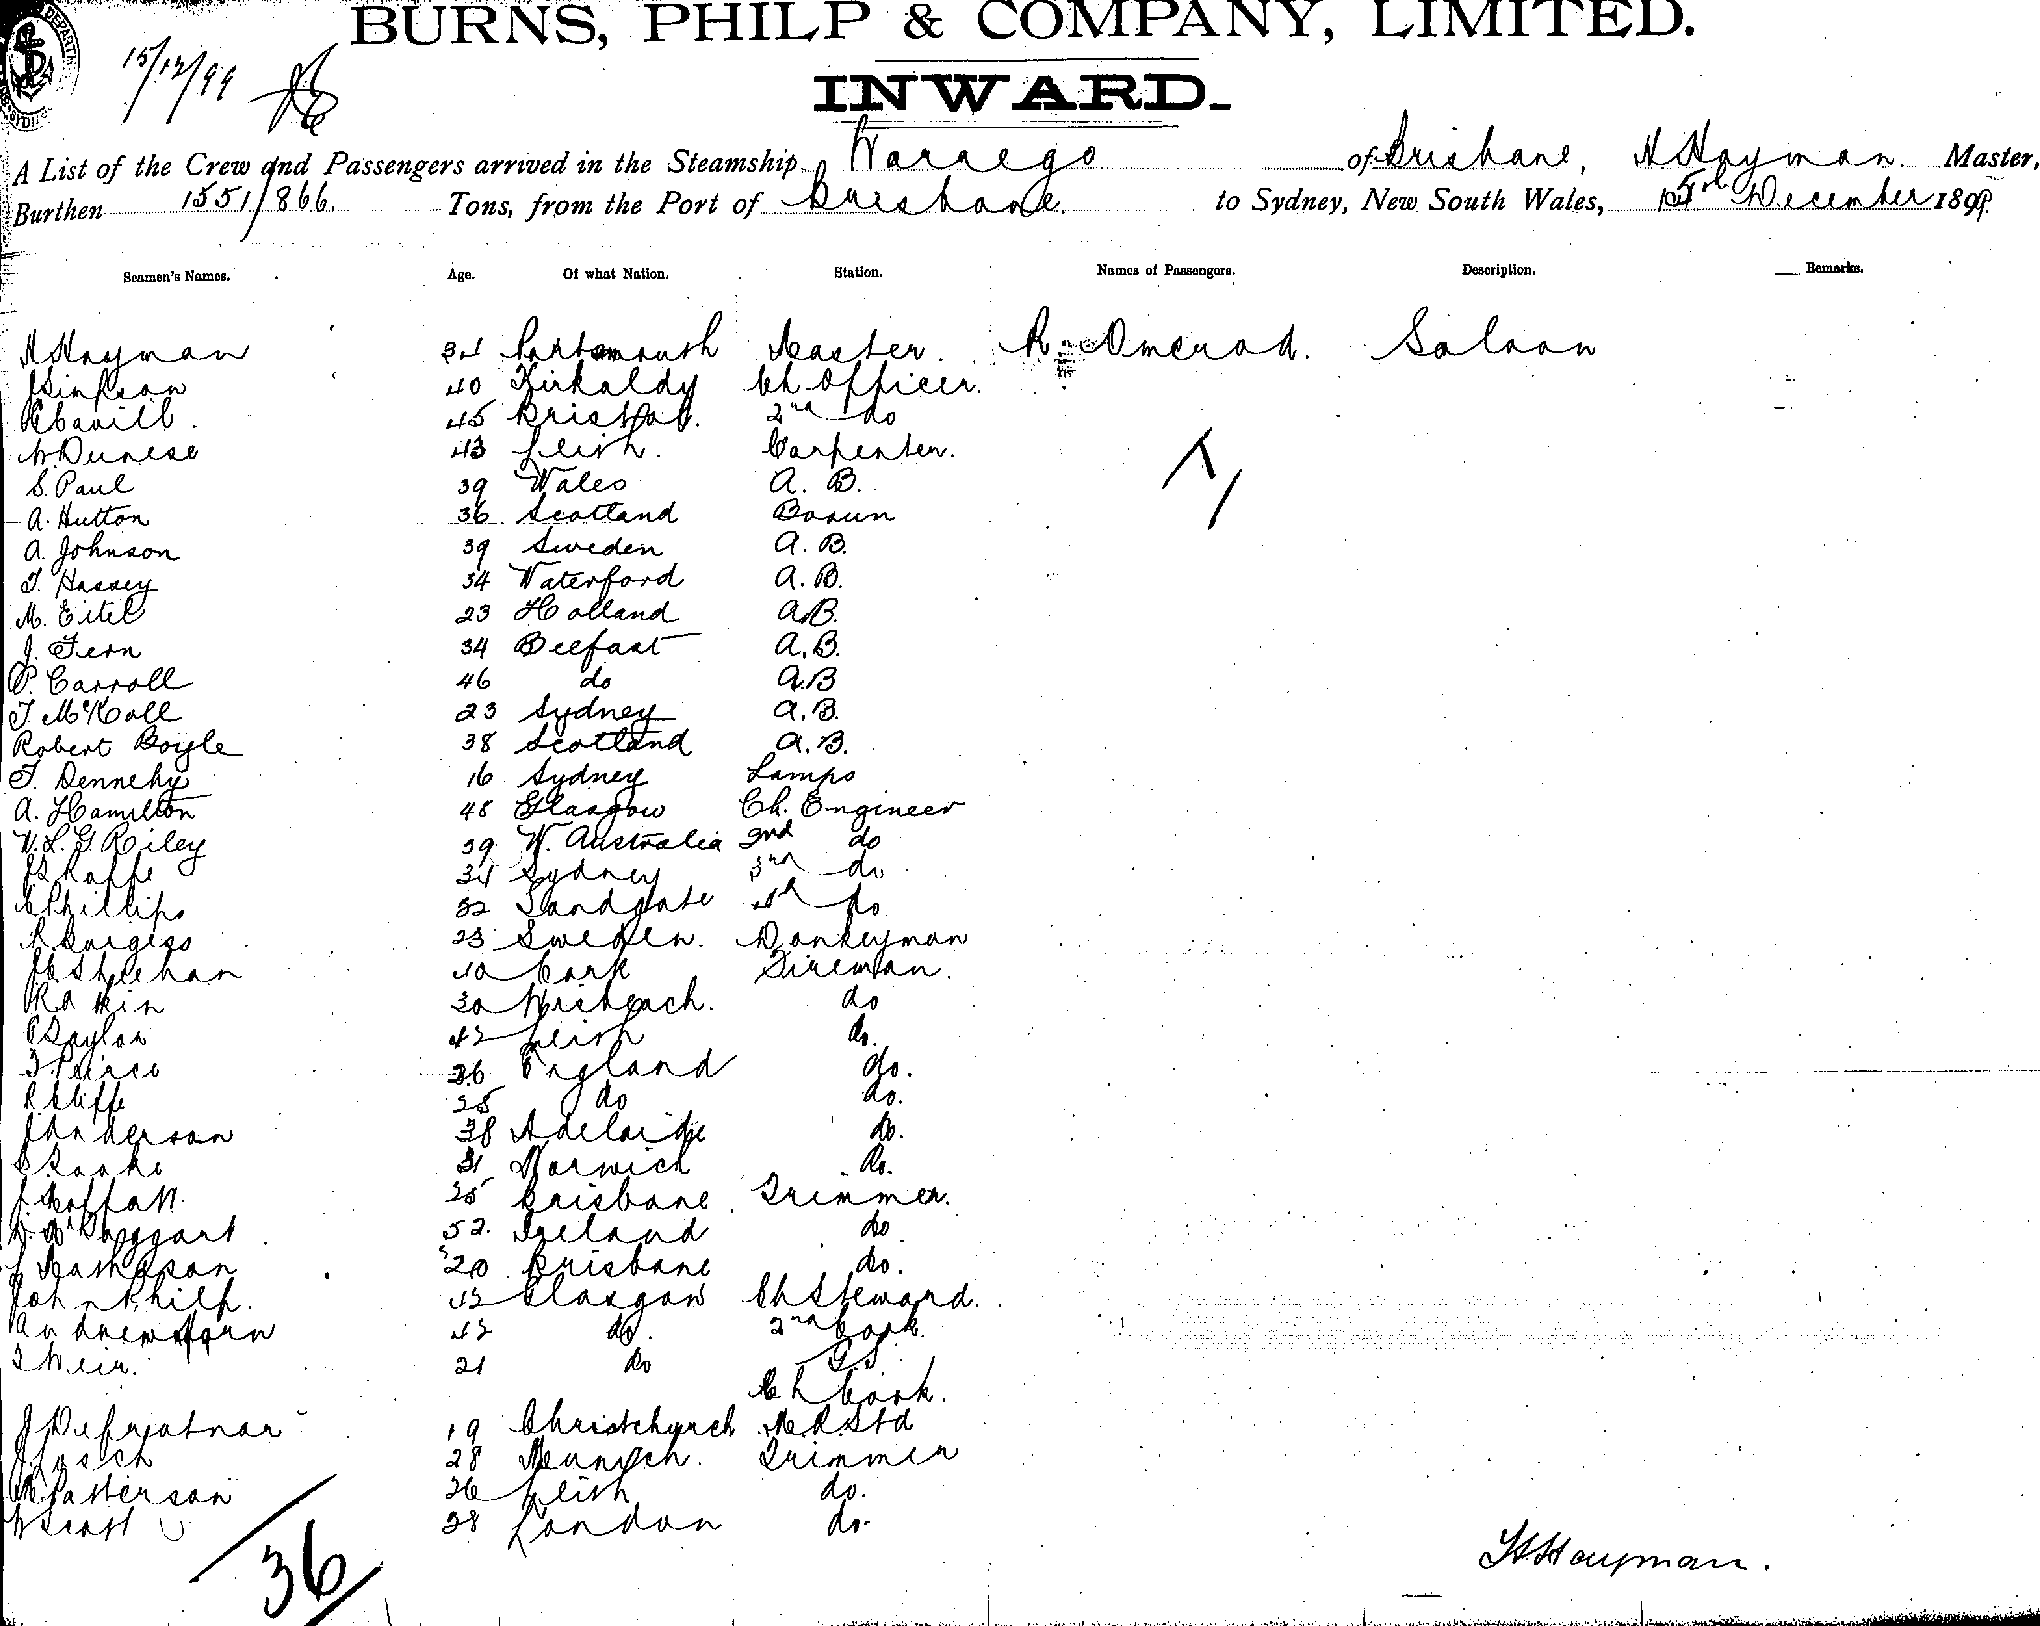 BURNS, PHILP & COMPANY, LIMITED.
15/12/99
INWARD.
A List of the Crew and Passengers arrived in the Steamship Warrego of Brisbane, H Hayman. Master,
Burthen 1551/866. Tons, from the Port of Brisbane. to Sydney, New South Wales, 15th December 1899.
Seamen's Names. Age. Of what Nation. Station. Names of Passengers. Description. Remarks.
H Hayman 34 Portsmouth Master. R. Omerod. Saloon
J Simpson 40 Kirkaldy Ch Officer.
R Cavill. 45 Bristol. 2nd do
43 Leith. Carpenter.
S. Paul 39 Wales A. B.
A. Hutton 36 Scotland Bosun
A. Johnson 39 Sweden A. B.
T. Hassey 34 Waterford A. B.
M. Eitel 23 Holland A.B.
J. Fern 34 Belfast A.B.
P. Carroll 46 do A.B
T. McColl 23 Sydney A.B.
Robert Boyle 38 Scotland A.B.
T. Dennehy 16 Sydney Lamps
A. Hamilton 48 Glasgow Ch. Engineer
W. L. G. Riley 39 W. Australia 2nd do
34 Sydney 3rd do
C Phillips 32 Sandgate 4th do
R Burgess 23 Sweden. Donkeyman
J C Sheehan 40 Cork Fireman.
30 Wisbeach. do
42 Leith do.
T. Peirce 36 England do.
R Cliffe 25 do do.
J Anderson 38 Adelaide do.
31 Norwich do.
J. Moffatt. 25 Brisbane Trimmer.
52. Ireland do
20 Brisbane do.
John Philp. 42 Glasgow Ch Steward.
Andrew 42 do. 2nd Cook.
T Weir. 21 do G.S.
Ch Cook.
19 Christchurch M R Std
28 Munich. Trimmer
Patterson 26 Leith do.
W Scott 28 London do.
36
H Hayman.